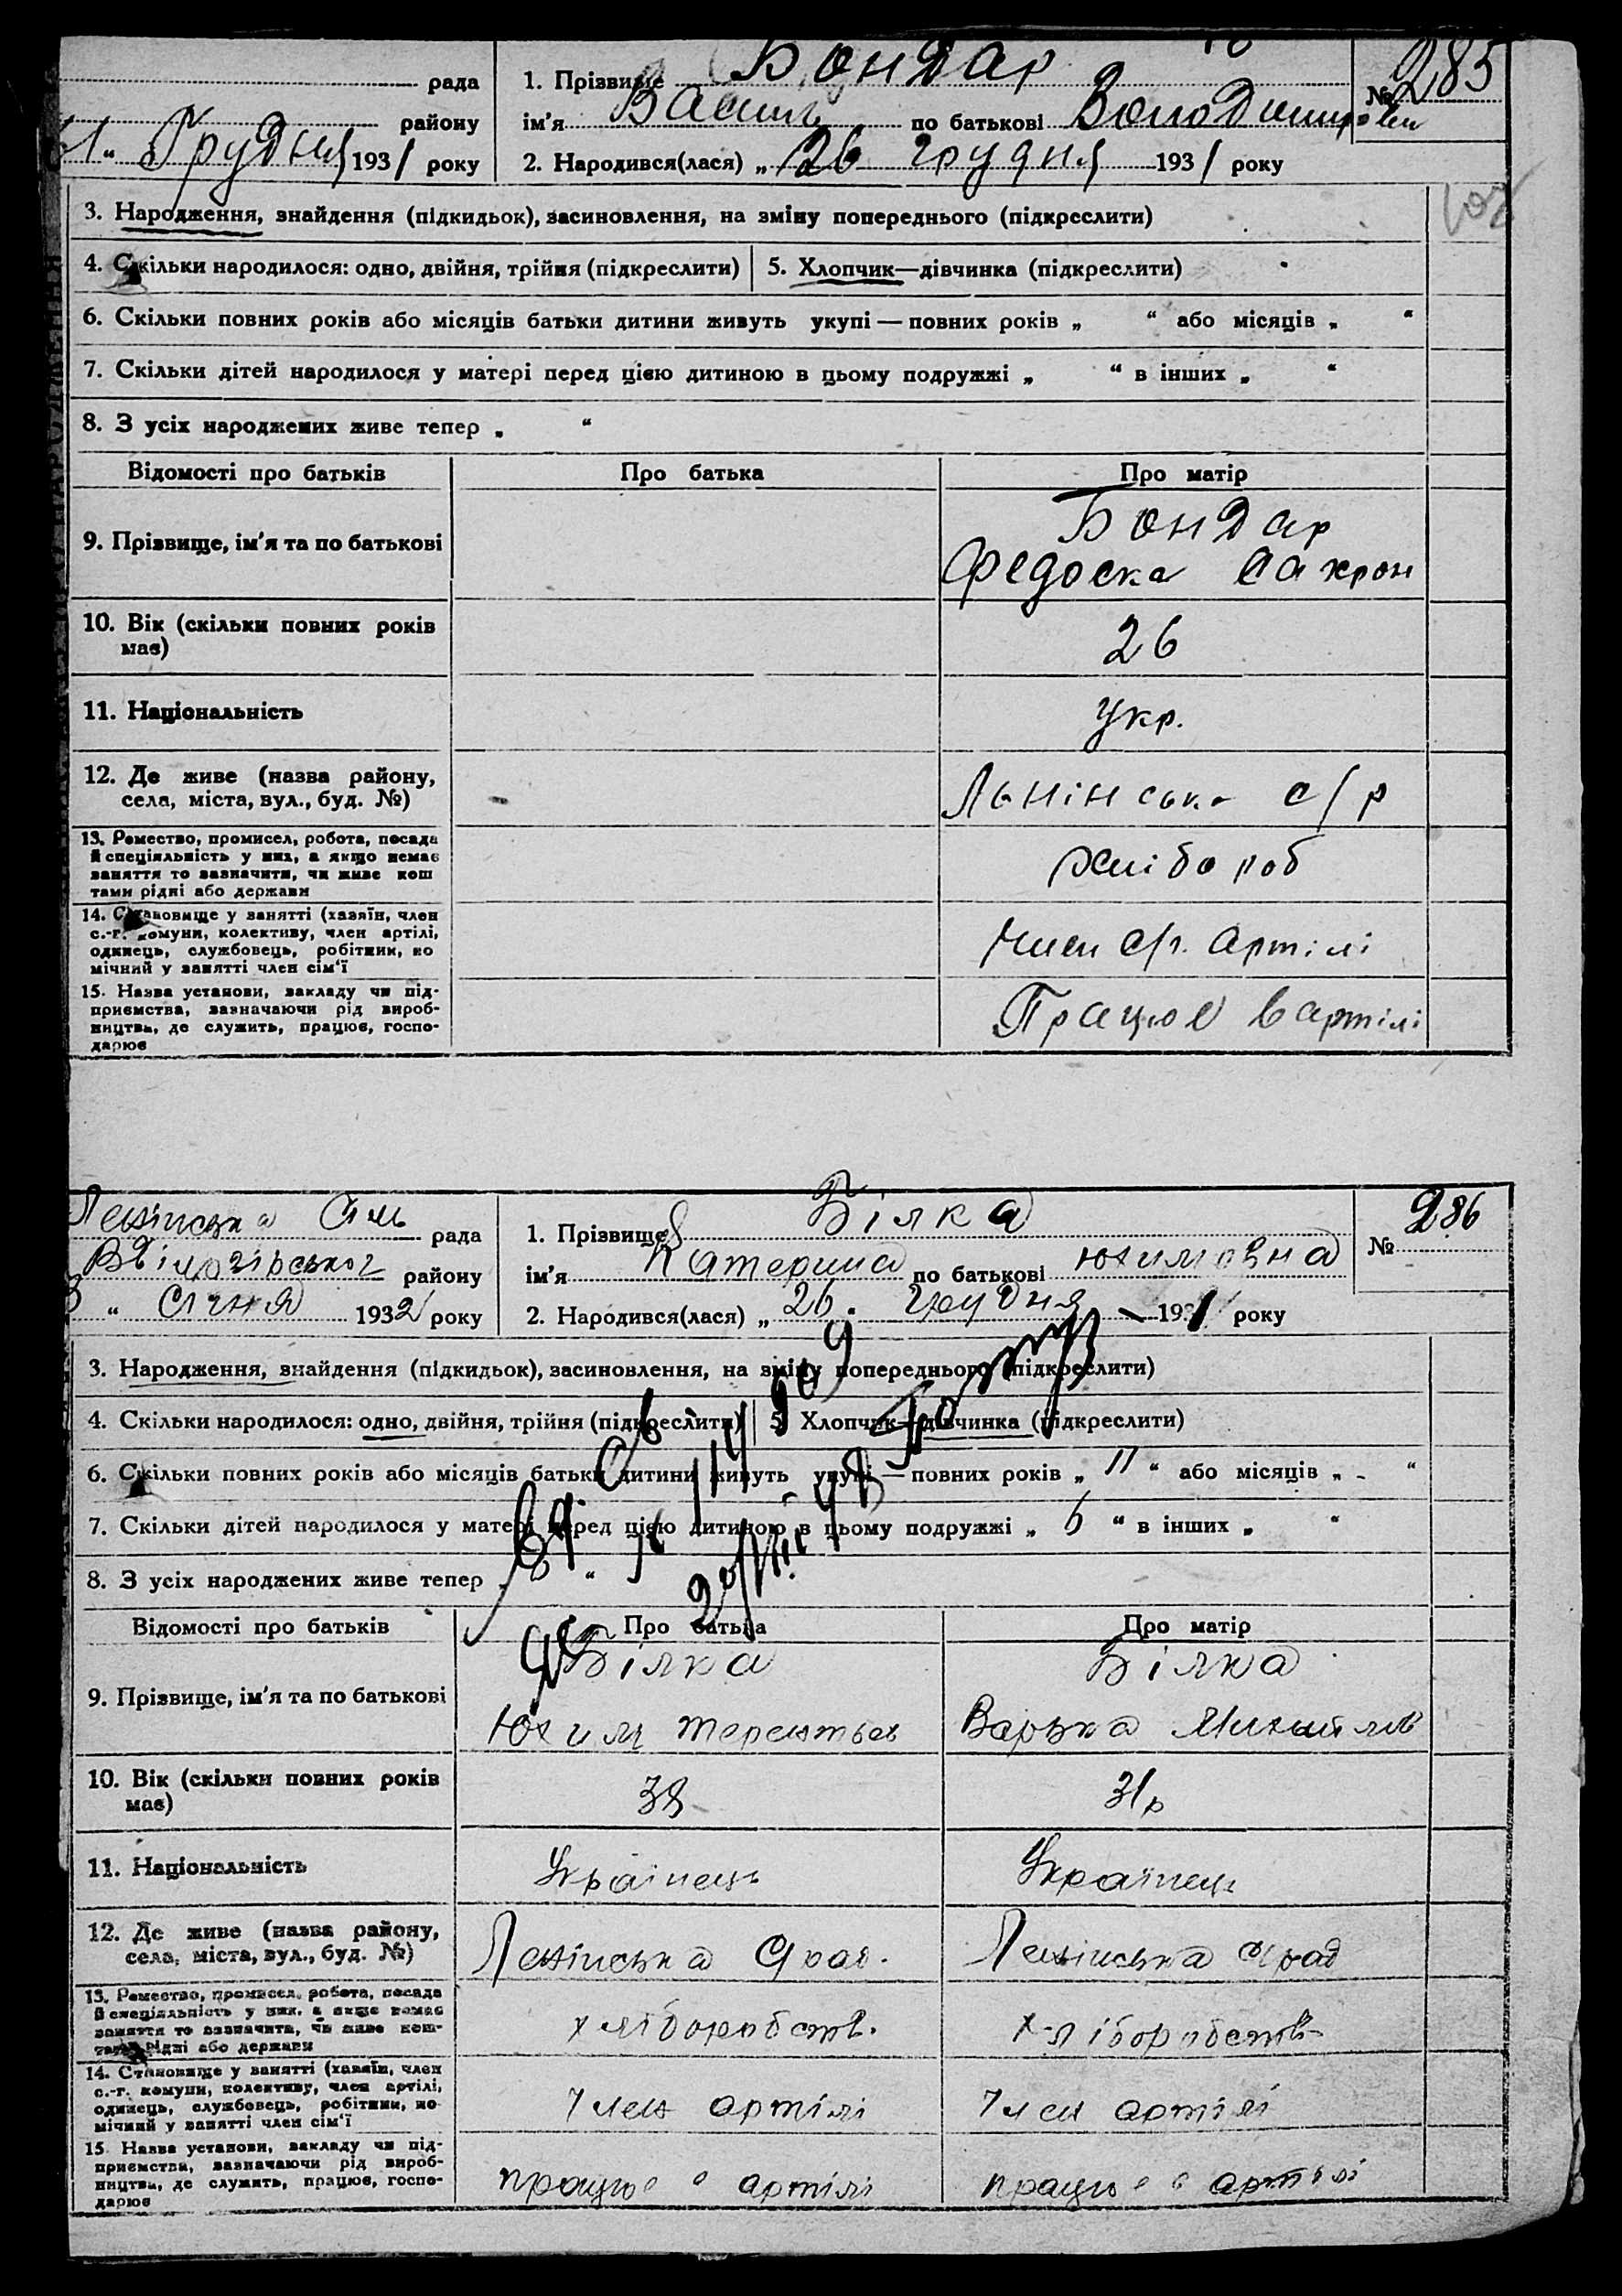 рада
1. Прізвище Бондар
№ 285
району
ім'я Василь по батькові Володимирович
31 " Грудня 1931 року
2. Народився(лася) „ 26 грудня 1931 року
3. Народження, знайдення (підкидьок), засиновлення, на зміну попереднього (підкреслити)
4. Скільки народилося: одно, двійня, трійня (підкреслити) 5. Хлопчик—дівчинка (підкреслити)
6. Скільки повних років або місяців батьки дитини живуть укупі — повних років „ “ або місяців „ “
7. Скільки дітей народилося у матері перед цією дитиною в цьому подружжі „ “ в інших „ “
8. З усіх народжених живе тепер „ “
Відомості про батьків Про батька Про матір
9. Прізвище, ім'я та по батькові
Бондар
Федоска
10. Вік (скільки повних років має)
26
11. Національність
укр.
12. Де живе (назва району,
села, міста, вул., буд. №)
с/р
13. Ремество, промисел, робота, посада
й спеціяльність у них, а якщо немає
заняття то зазначити, чи живе кош
тами рідні або держави
хлібороб
14. Становище у занятті (хазяїн, член
с.-г. комуни, колективу, член артілі,
одинець, службовець, робітник, по
мічний у занятті член сім'ї
член с/г. артілі
15. Назва установи, закладу чи під-
приємства, зазначаючи рід вироб-
ництва, де служить, працює, госпо-
дарює
Працює в артілі
Ленінська Сіль рада
1. Прізвище Білка
№ 286
району
ім'я Катерина по батькові Юхимовна
3 “ Січня 1932 року
2. Народився(лася) „ 26 . грудня 1931 року
3. Народження, знайдення (підкидьок), засиновлення, на зміну попереднього (підкреслити)
4. Скільки народилося: одно, двійня, трійня (підкреслити) 5. Хлопчик—дівчинка (підкреслити)
6. Скільки повних років або місяців батьки дитини живуть укупі — повних років „ 11 “ або місяців „ - “
7. Скільки дітей народилося у матері перед цією дитиною в цьому подружжі „ 6 “ в інших „ “
8. З усіх народжених живе тепер „ “
Відомості про батьків Про батька Про матір
9. Прізвище, ім'я та по батькові
Білка Білка
Юхим Терентьев Варька Михайлів
10. Вік (скільки повних років має)
38 31р
11. Національність
Українець Українець
12. Де живе (назва району,
села, міста, вул., буд. №)
Ленінська С/рад. Ленінська с/рад
13. Ремество, промисел, робота, посада
й спеціяльність у них, а якщо немає
заняття то зазначити, чи живе кош-
тами рідні або держави
хліборобств. хліборобств-
14. Становище у занятті (хазяїн, член
с.-г. комуни, колективу, член артілі,
одинець, службовець, робітник, по
мічний у занятті член сім'ї
Член артілі Член артілі
15. Назва установи, закладу чи під-
приємства, зазначаючи рід вироб-
ництва, де служить, працює, госпо-
дарює
працює в артілі працює в артілі